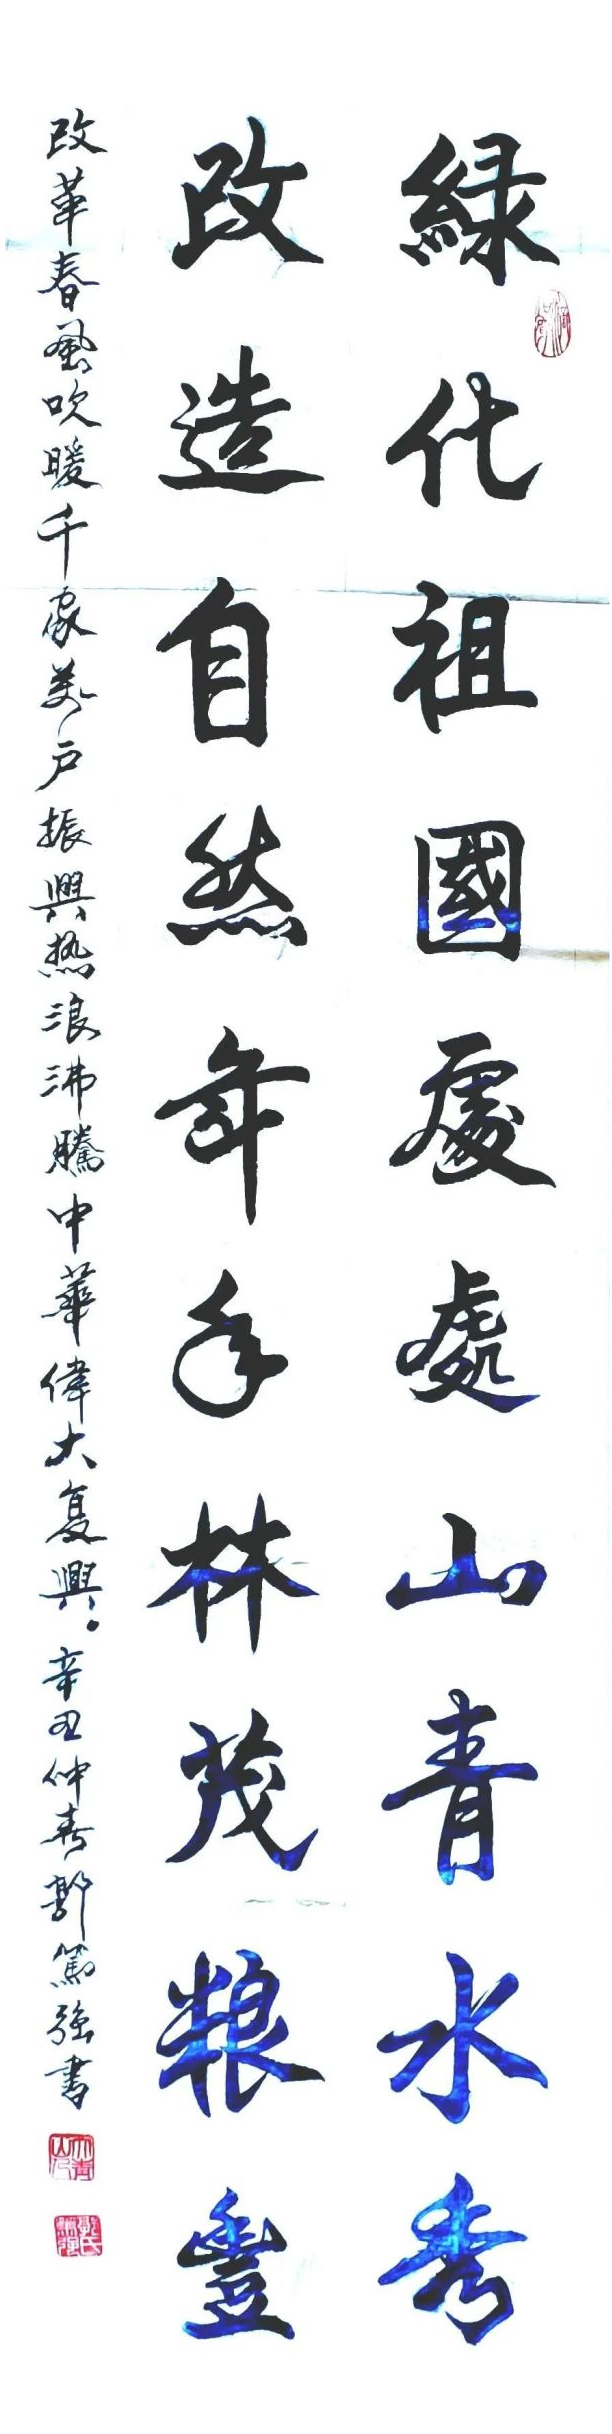 緑化祖國處處山青水秀
改造自然年年林茂粮豐
改革春風吹暖千家萬户振興热浪沸騰中華偉大复興。辛丑仲春郭篤强書